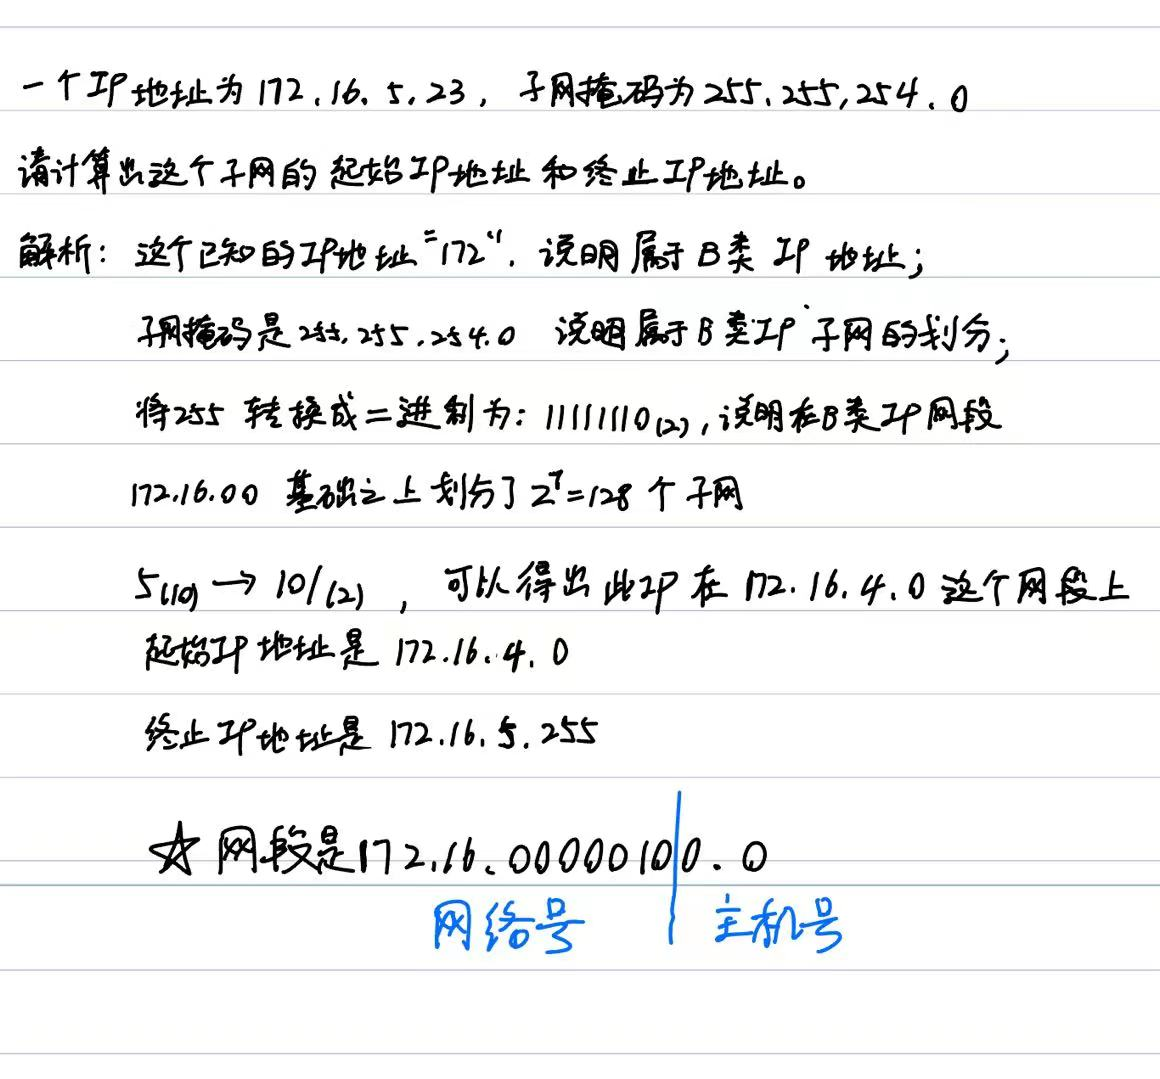 一个IP地址为172.16.5.23，子网掩码为255.255.254.0
请计算出这个子网的起始IP地址和终止IP地址。
解析：这个已知的IP地址“172”，说明属于B类IP地址；
子网掩码是255.255.254.0 说明属于B类IP子网的划分；
将255转换成二进制为：11111110(2)，说明在B类IP网段
172.16.00 基础之上划分了2^7=128个子网
5(10)→101(2)，可以得出此IP在172.16.4.0这个网段上
起始IP地址是172.16.4.0
终止IP地址是172.16.5.255
☆网段是172.16.00000100.0
网络号 主机号